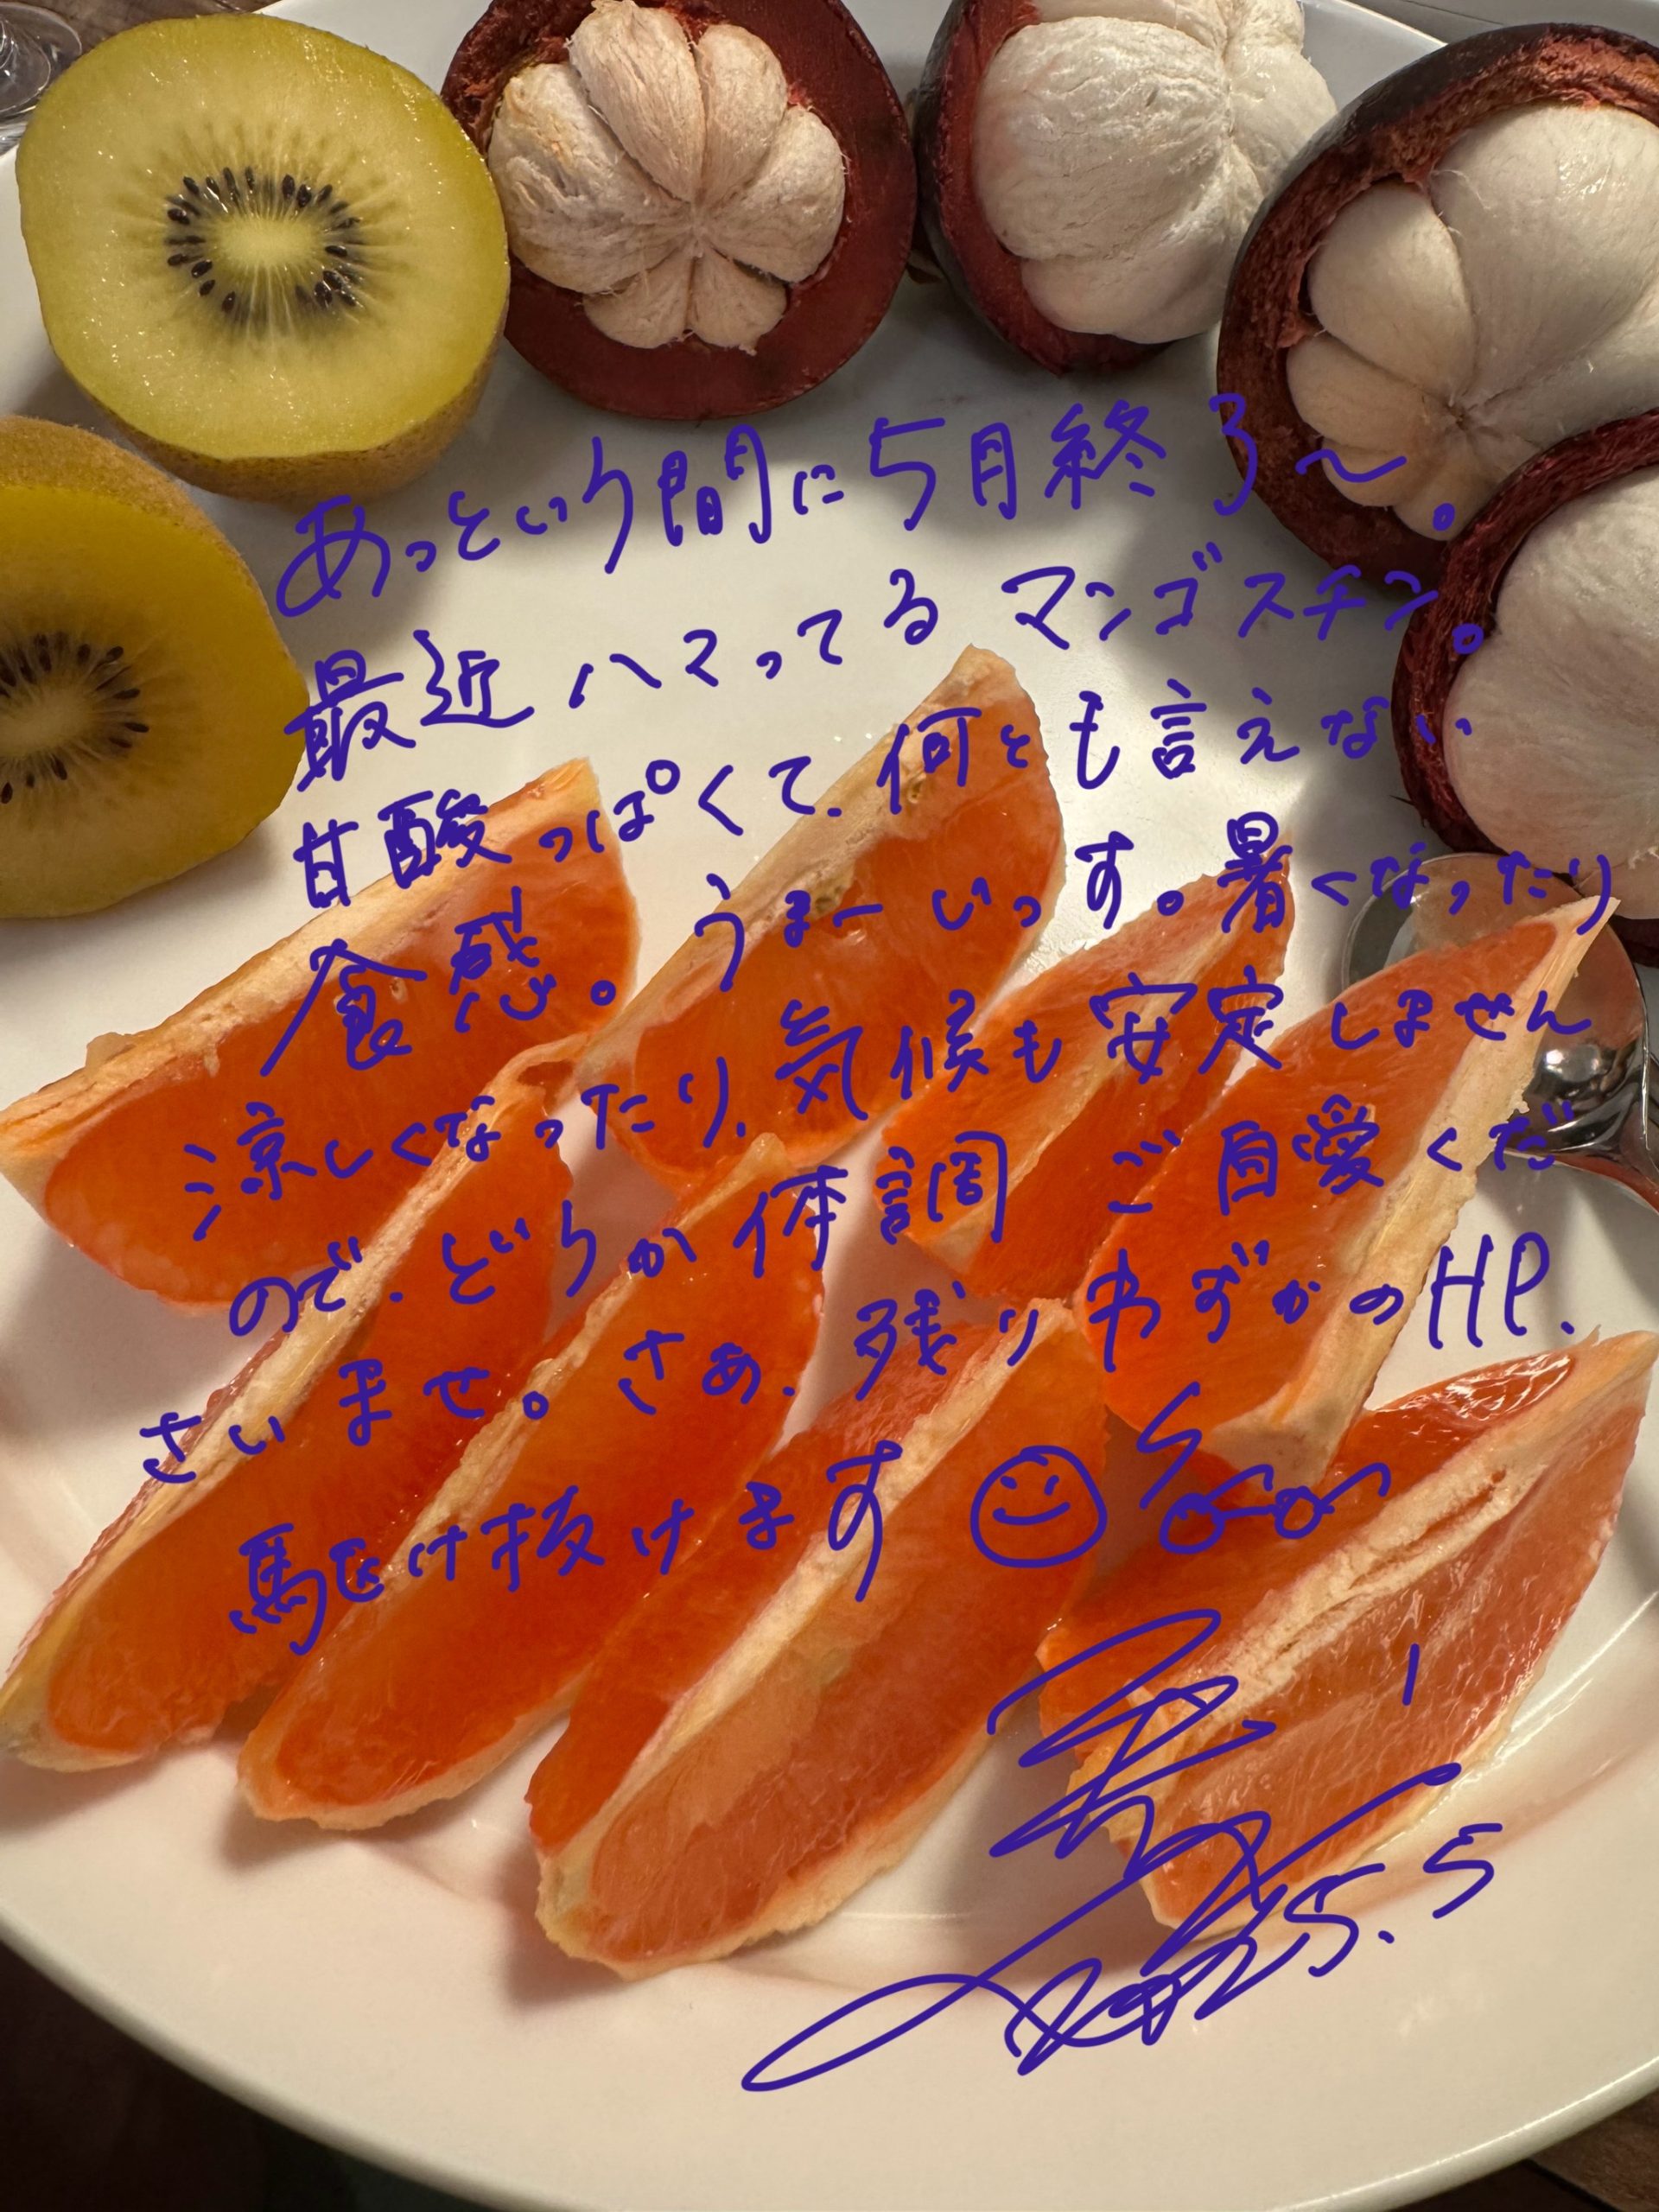 あっという間に5月終了〜。
最近ハマってるマンゴスチン。
甘酸っぱくて、何とも言えない
食感。うまーいっす。暑くなったり
涼しくなったり、気候も安定しません
ので、どうか体調ご自愛くだ
さいませ。さあ、残りわずかのHP、
駆け抜けます
25.5